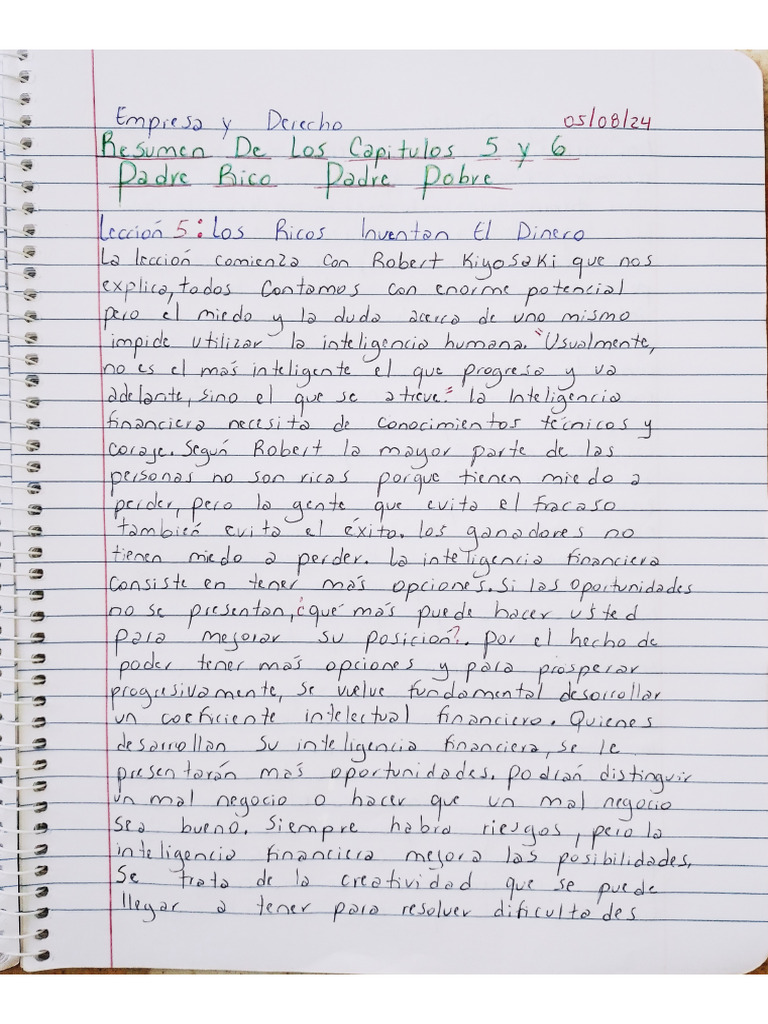 Empresa y Derecho 05/08/24
Resumen De Los Capitulos 5 y 6
Padre Rico Padre Pobre
Lección 5: Los Ricos Inventan El Dinero
La lección comienza con Robert Kiyosaki que nos
explica, todos contamos con enorme potencial
pero el miedo y la duda acerca de uno mismo
impide utilizar la inteligencia humana. "Usualmente,
no es el más inteligente el que progresa y va
adelante, sino el que se atreve." La Inteligencia
financiera necesita de conocimientos técnicos y
coraje. Según Robert la mayor parte de las
personas no son ricas porque tienen miedo a
perder, pero la gente que evita el fracaso
también evita el éxito. Los ganadores no
tienen miedo a perder. La inteligencia financiera
consiste en tener más opciones. Si las oportunidades
no se presentan, ¿qué más puede hacer usted
para mejorar su posición?. Por el hecho de
poder tener más opciones y para prosperar
progresivamente, se vuelve fundamental desorrollar
un coeficiente intelectual financiero. Quienes
desarrollan su inteligencia financiera, se le
presentarán más oportunidades. Podrán distinguir
un mal negocio o hacer que un mal negocio
sea bueno. Siempre habra riesgos, pero la
inteligencia financiera mejora las posibilidades.
Se trata de la creatividad que se puede
llegar a tener para resolver dificultades